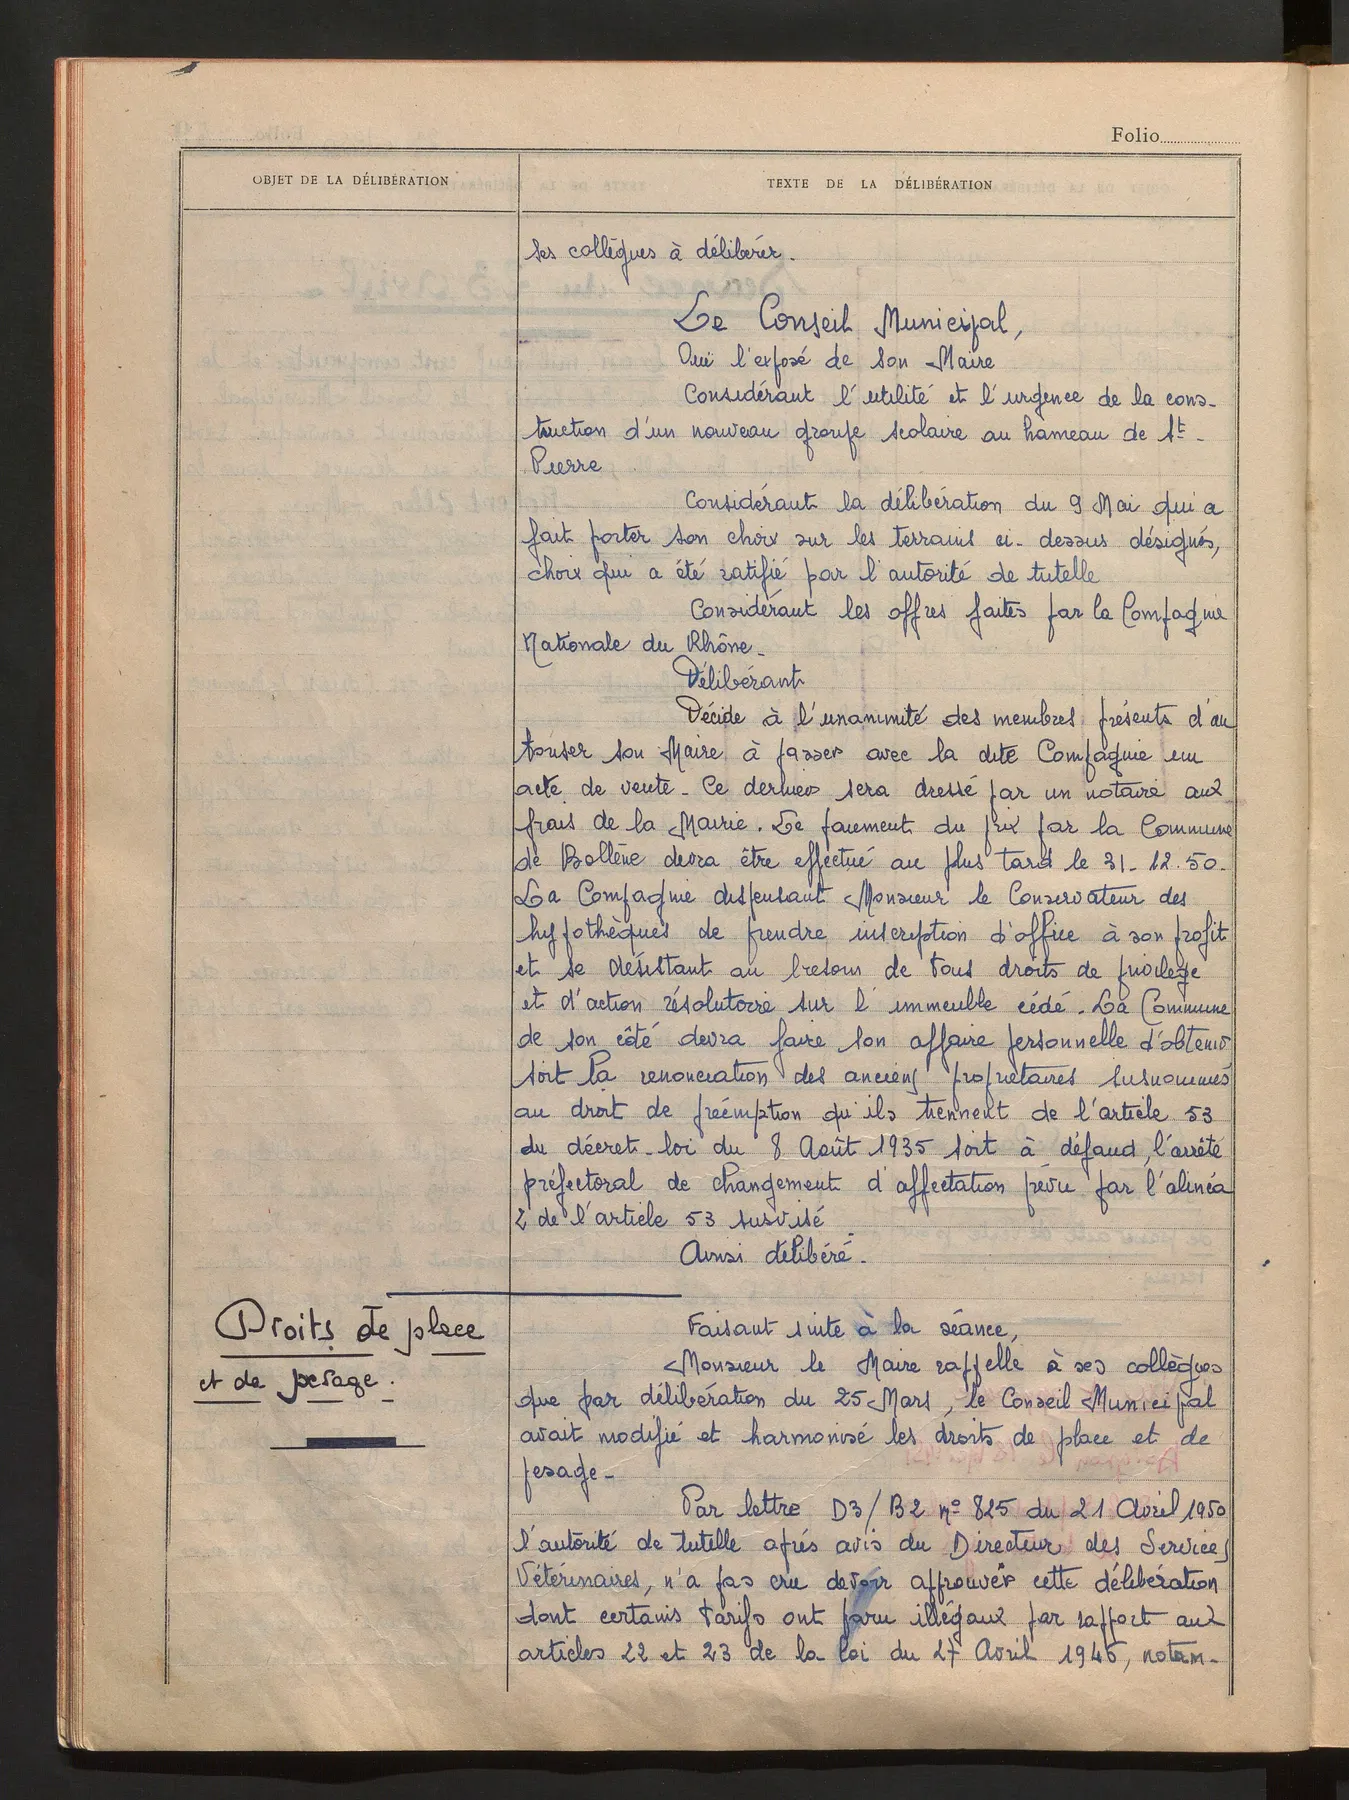 Folio
OBJET DE LA DÉLIBÉRATION
TEXTE DE LA DÉLIBÉRATION
ses collègues à délibérer.
Le Conseil Municipal,
Ouï l'exposé de son Maire
Considérant l'utilité et l'urgence de la cons-
truction d'un nouveau groupe scolaire au hameau de St-
Pierre
Considérant la délibération du 9 Mai qui a
fait porter son choix sur les terrains ci-dessus désignés,
choix qui a été ratifié par l'autorité de tutelle
Considérant les offres faites par la Compagnie
Nationale du Rhône-
Délibérant
Décide à l'unanimité des membres présents d'au
toriser son Maire à passer avec la dite Compagnie un
acte de vente - Ce dernier sera dressé par un notaire aux
frais de la Mairie. Le paiement du prix par la Commune
de Bollène devra être effectué au plus tard le 31-12-50-
La Compagnie dispensant Monsieur le Conservateur des
hypothèques de prendre inscription d'office à son profit
et se désistant au besoin de tous droits de privilège
et d'action résolutoire sur l'immeuble cédé. La Commune
de son côté devra faire son affaire personnelle d'obtenir
soit la renonciation des anciens propriétaires susnommés
au droit de préemption qu'ils tiennent de l'article 53
du décret-loi du 8 Août 1935 soit à défaud, l'arrêté
préfectoral de changement d'affectation prévu par l'alinéa
2 de l'article 53 susvisé
Ainsi délibéré-
Droits de place
et de pesage.
Faisant suite à la séance,
Monsieur le Maire rappelle à ses collègues
que par délibération du 25 Mars, le Conseil Municipal
avait modifié et harmonisé les droits de place et de
pesage-
Par lettre D3/B2 n° 825 du 21 Avril 1950
l'autorité de tutelle après avis du Directeur des Services
Vétérinaires, n'a pas cru devoir approuver cette délibération
dont certains tarifs ont paru illégaux par rapport aux
articles 22 et 23 de la loi du 27 Avril 1946, notam-